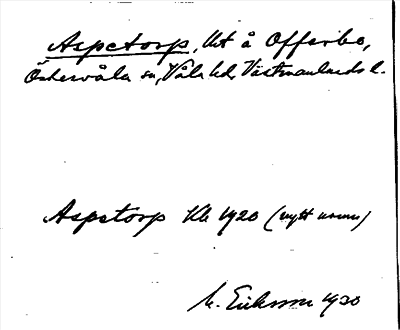 Aspetorp, lht å Offerbo,
Östervåla sn, Våla hd, Västmanlands l.
Aspetorp Kb 1920 (nytt namn)
M. Eriksson 1930